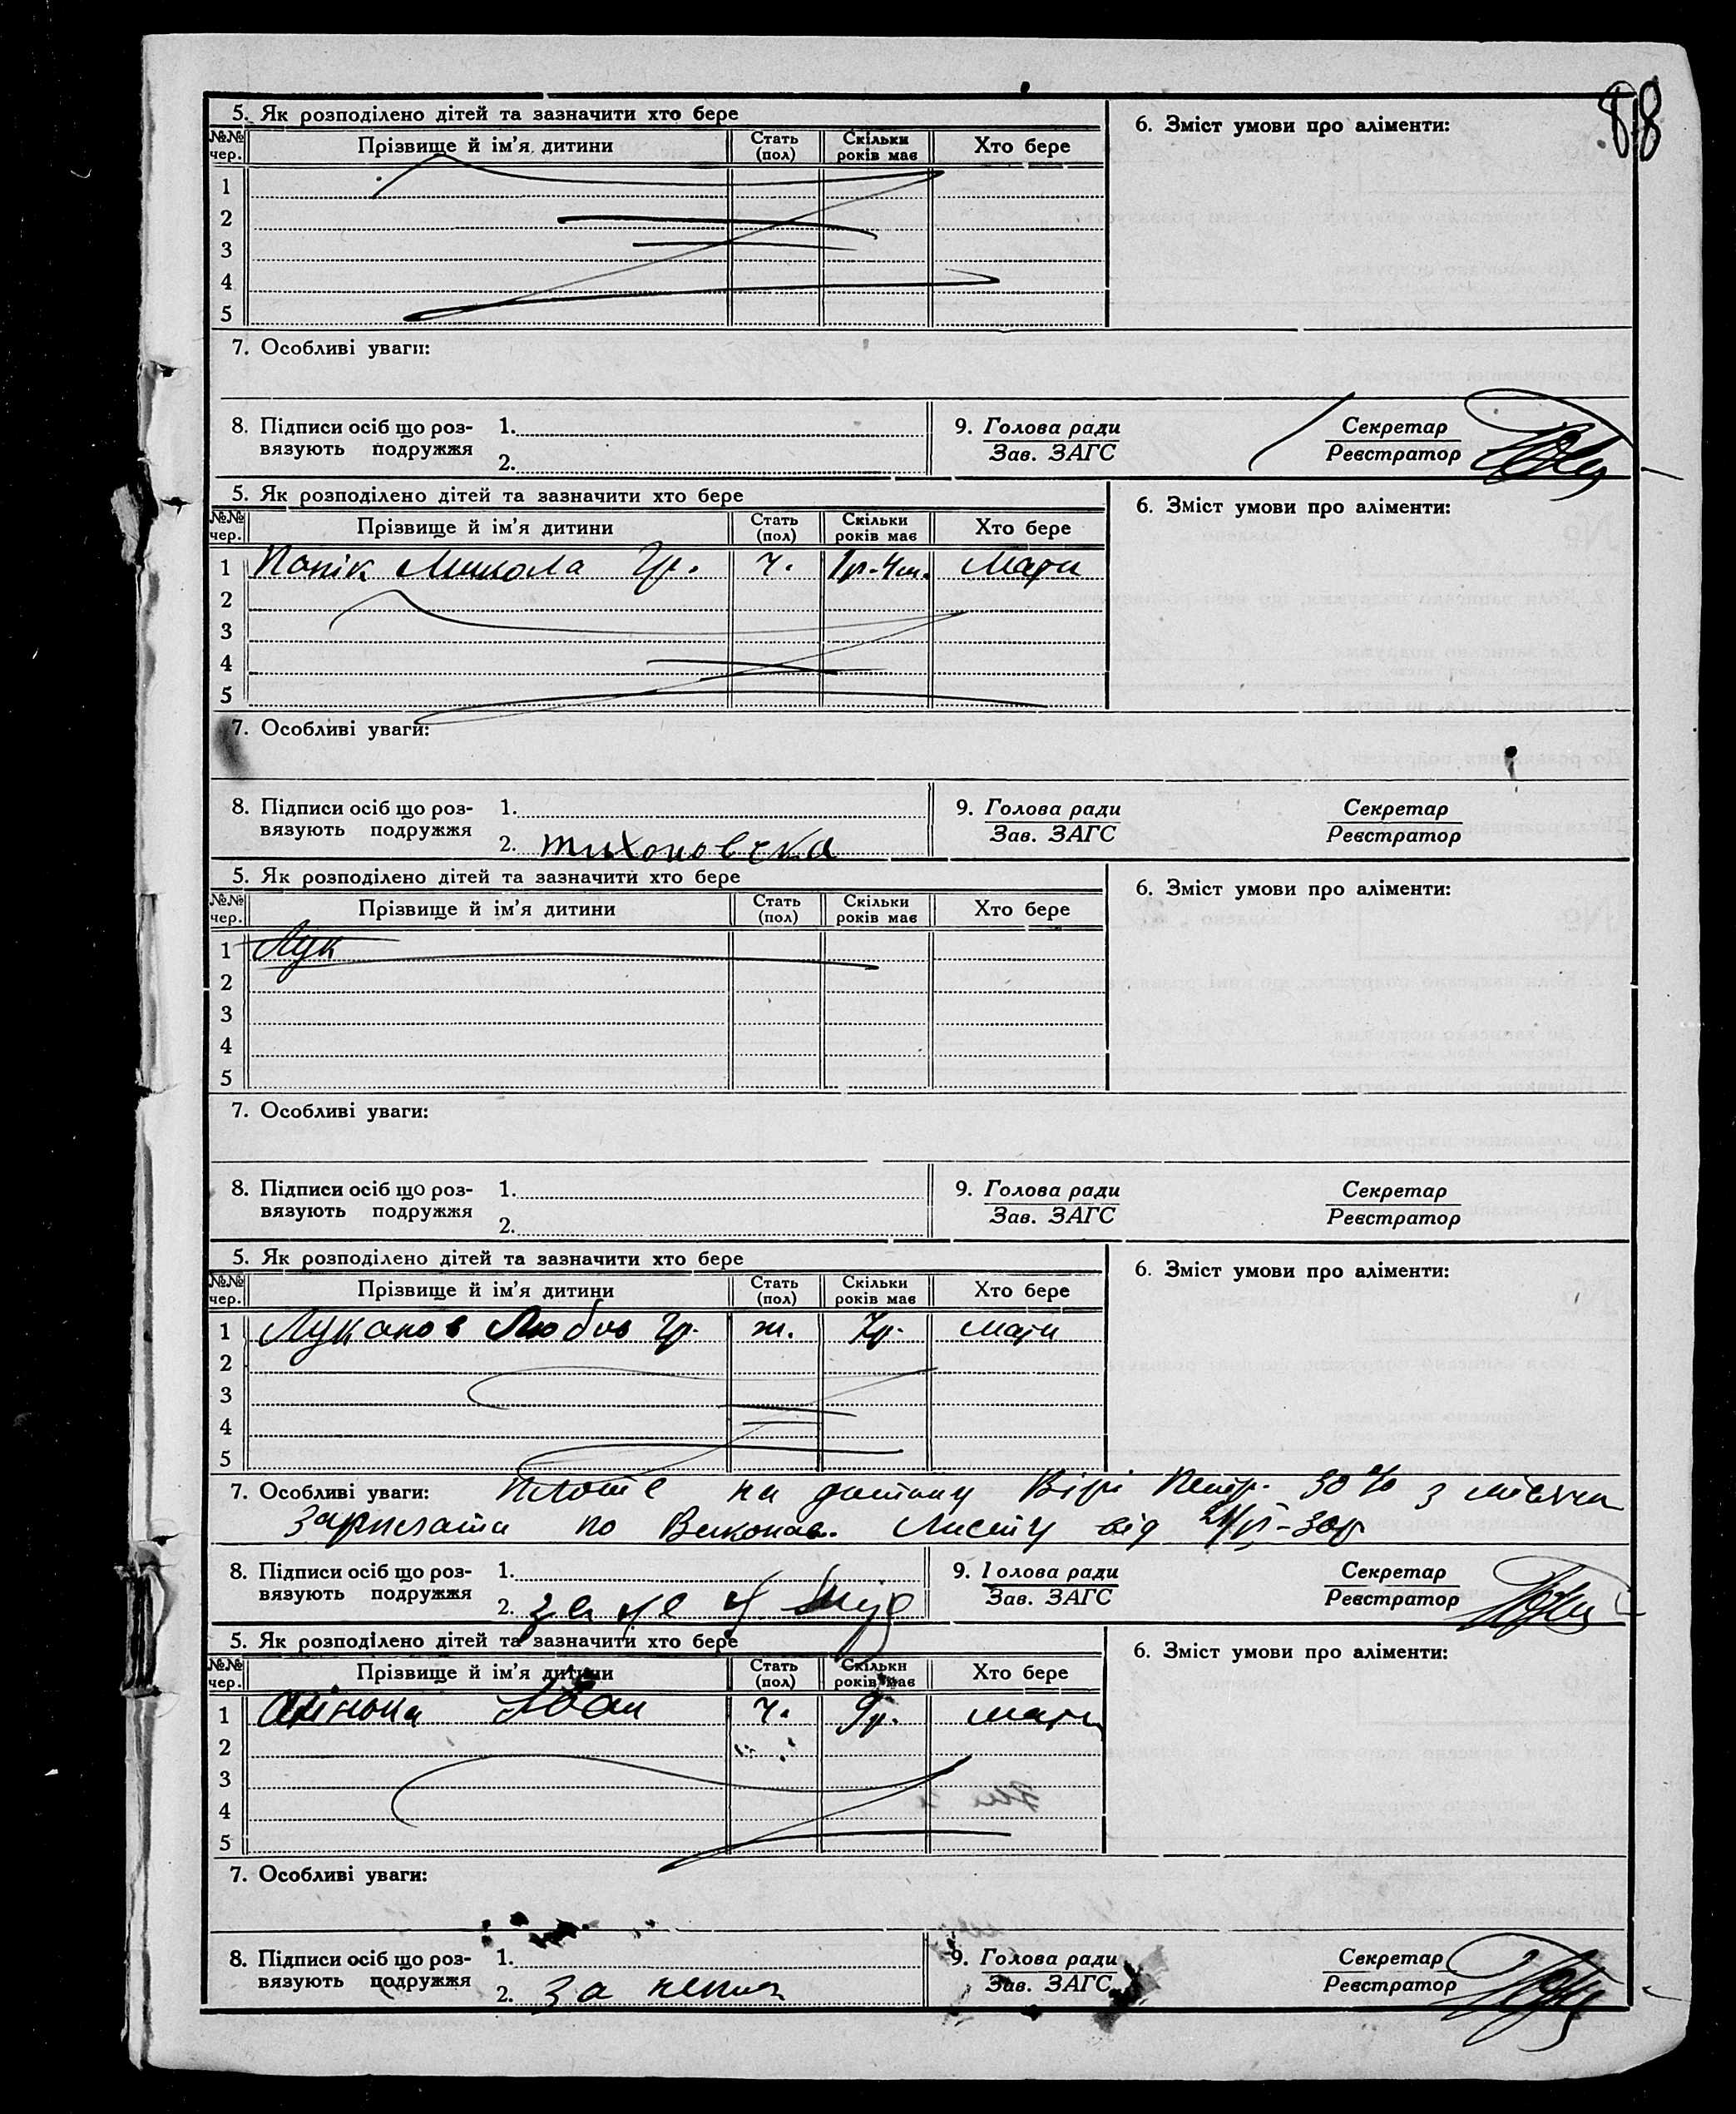 88
5. Як розподілено дітей та зазначити хто бере
6. Зміст умови про аліменти:
№№ чер. Прізвище й ім'я дитини Стать (пол) Скільки років має Хто бере
1
2
3
4
5
7. Особливі уваги:
8. Підписи осіб що роз- 1. 9. Голова ради Секретар
вязують подружжя 2. Зав. ЗАГС Реєстратор
5. Як розподілено дітей та зазначити хто бере
6. Зміст умови про аліменти:
№№ чер. Прізвище й ім'я дитини Стать (пол) Скільки років має Хто бере
1 Попік Микола Гр. ч. 1р. 4м. Мати
2
3
4
5
7. Особливі уваги:
8. Підписи осіб що роз- 1. 9. Голова ради Секретар
вязують подружжя 2. тихоновска Зав. ЗАГС Реєстратор
5. Як розподілено дітей та зазначити хто бере
6. Зміст умови про аліменти:
№№ чер. Прізвище й ім'я дитини Стать (пол) Скільки років має Хто бере
1 Лук
2
3
4
5
7. Особливі уваги:
8. Підписи осіб що роз- 1. 9. Голова ради Секретар
вязують подружжя 2. Зав. ЗАГС Реєстратор
5. Як розподілено дітей та зазначити хто бере
6. Зміст умови про аліменти:
№№ чер. Прізвище й ім'я дитини Стать (пол) Скільки років має Хто бере
1 Луканов Любов Гр. ж. 7р. мати
2
3
4
5
7. Особливі уваги: Плате на дитину Вірі Петр. 30% з місячн
Зарплати по Виконав. Листу від
8. Підписи осіб що роз- 1. 9. Голова ради Секретар
вязують подружжя 2. за не Зав. ЗАГС Реєстратор
5. Як розподілено дітей та зазначити хто бере
6. Зміст умови про аліменти:
№№ чер. Прізвище й ім'я дитини Стать (пол) Скільки років має Хто бере
1 Іван ч. 9р. мати
2
3
4
5
7. Особливі уваги:
8. Підписи осіб що роз- 1. 9. Голова ради Секретар
вязують подружжя 2. за Зав. ЗАГС Реєстратор